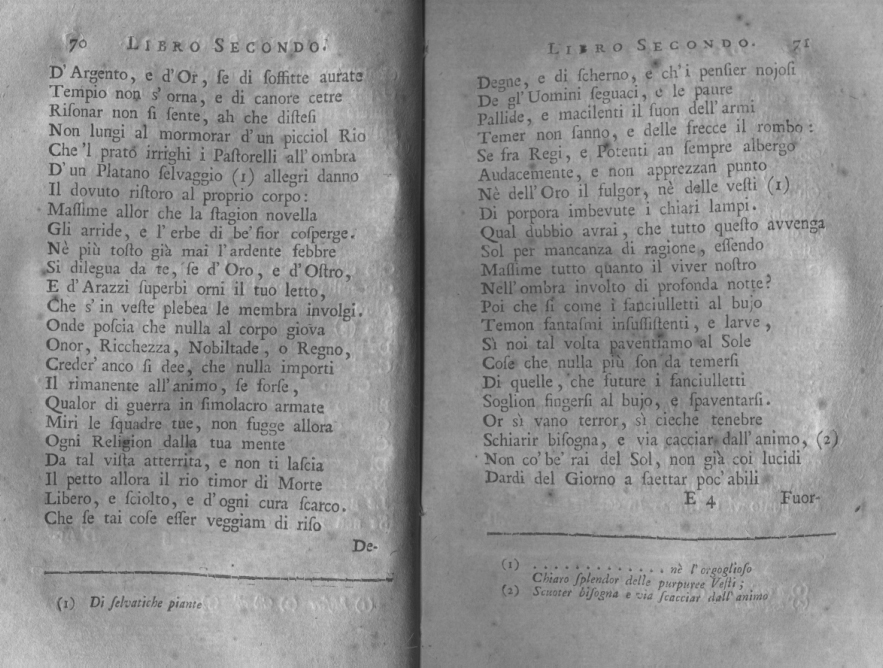 70 LIBRO SECONDO.
D'Argento, e d'Or, ſe di ſoffitte aurate
Tempio non s'orna, e di canore cetre
Riſonar non ſi ſente, ah che diſteſi
Non lungi al mormorar d'un picciol Rio
Che 'l prato irrighi i Paſtorelli all'ombra
D'un Platano ſelvaggio (1) allegri danno
Il dovuto riſtoro al proprio corpo:
Maſſime allor che la ſtagion novella
Gli arride, e l'erbe di be' fior coſperge.
Nè più toſto già mai l'ardente febbre
Si dilegua da te, ſe d'Oro, e d'Oſtro,
E d'Arazzi ſuperbi orni il tuo letto,
Che s'in veſte plebea le membra involgi.
Onde poſcia che nulla al corpo giova
Onor, Ricchezza, Nobiltade, o Regno,
Creder' anco ſi dee, che nulla importi
Il rimanente all'animo, ſe forſe,
Qualor di guerra in ſimolacro armate
Miri le ſquadre tue, non fugge allora
Ogni Religion dalla tua mente
Da tal viſta atterrita, e non ti laſcia
Il petto allora il rio timor di Morte
Libero, e ſciolto, e d'ogni cura ſcarco.
Che ſe tai coſe eſſer veggiam di riſo
De-
(1) Di ſelvatiche piante
LIBRO SECONDO. 71
Degne, e di ſcherno, e ch'i penſier nojoſi
De gl'Uomini ſeguaci, e le paure
Pallide, e macilenti il ſuon dell'armi
Temer non ſanno, e delle frecce il rombo:
Se fra Regi, e Potenti an ſempre albergo
Audacemente, e non apprezzan punto
Nè dell'Oro il fulgor, nè delle veſti (1)
Di porpora imbevute i chiari lampi.
Qual dubbio avrai, che tutto queſto avvenga
Sol per mancanza di ragione, eſſendo
Maſſime tutto quanto il viver noſtro
Nell'ombra involto di profonda notte?
Poi che ſi come i fanciulletti al bujo
Temon fantaſmi inſuſſiſtenti, e larve,
Sì noi tal volta paventiamo al Sole
Coſe che nulla più ſon da temerſi
Di quelle, che future i fanciulletti
Soglion fingerſi al bujo, e ſpaventarſi.
Or sì vano terror, sì cieche tenebre
Schiarir biſogna, e via cacciar dall'animo, (2)
Non co' be' rai del Sol, non già coi lucidi
Dardi del Giorno a ſaettar poc'abili
E 4 Fuor-
(1) . . . . . . . . . . . . nè l'orgoglioſo
Chiaro ſplendor delle purpuree Veſti;
(2) Scuoter biſogna e via ſcacciar dall'animo